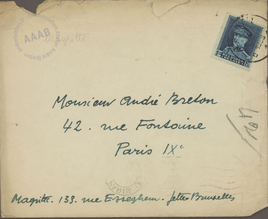 AAAB
Monsieur André Breton
42. rue Fontaine
Paris IXe
Magritte. 135. rue Esseghem. Jette Bruxelles